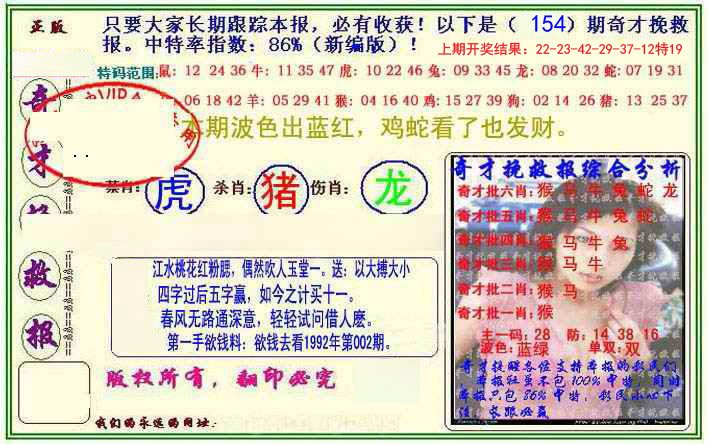 正版
只要大家长期跟踪本报，必有收获！以下是（ 154）期奇才挽救
报。中特率指数：86%（新编版）！
上期开奖结果：22-23-42-29-37-12特19
特码范围:鼠: 12 24 36 牛: 11 35 47 虎: 10 22 46 兔: 09 33 45 龙: 08 20 32 蛇: 07 19 31
06 18 42 羊: 05 29 41 猴: 04 16 40 鸡: 15 27 39 狗: 02 14 26 猪: 13 25 37
VIP
本期波色出蓝红，鸡蛇看了也发财。
禁肖: 虎 杀肖: 猪 伤肖: 龙
奇
才
救
报
江水桃花红粉腮，偶然吹入玉堂一。送：以大搏大小
四字过后五字赢，如今之计买十一。
春风无路通深意，轻轻试问借人麽。
第一手欲钱料：欲钱去看1992年第002期。
版权所有，翻印必究
我们的永远的网址:
奇才挽救报综合分析
奇才批六肖: 猴 马 牛 兔 蛇 龙
奇才批五肖: 猴 马 牛 兔 蛇
奇才批四肖: 猴 马 牛 兔
奇才批三肖: 猴 马 牛
奇才批二肖: 猴 马
奇才批一肖: 猴
主一码: 28 防: 14 38 16
波色: 蓝绿 单双: 双
奇才提醒各位支持本报的彩民们
本报担虽不包100%中特，同时
本报只包86%中特，彩民小心下
注，长跟必赢